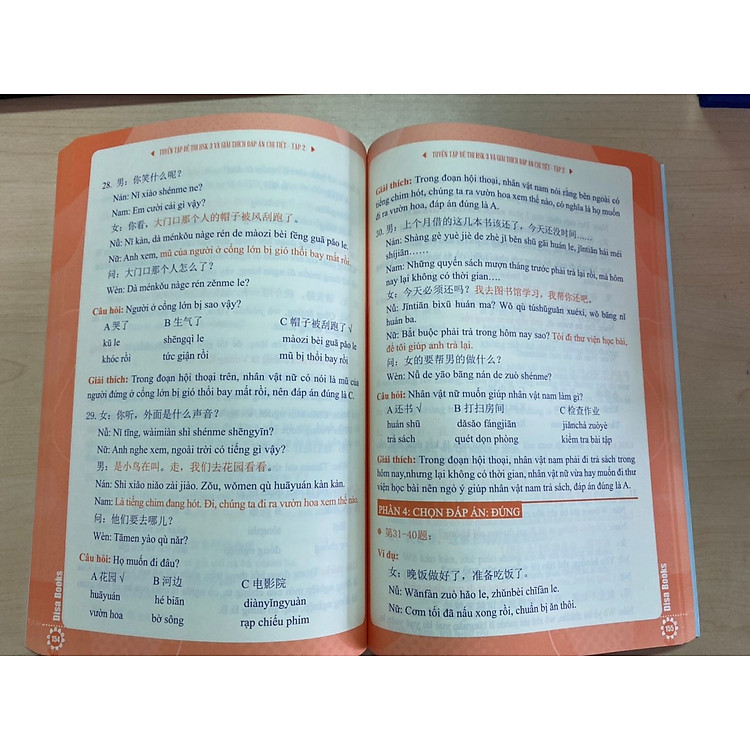 TUYỂN TẬP ĐỀ THI HSK 3 VÀ GIẢI THÍCH ĐÁP ÁN CHI TIẾT - TẬP 2
28. 男：你笑什么呢？
Nán: Nǐ xiào shénme ne?
Nam: Em cười cái gì vậy?
女：你看，大门口那个人的帽子被风刮跑了。
Nǚ: Nǐ kàn, dà ménkǒu nàge rén de màozi bèi fēng guā pǎo le.
Nữ: Anh xem, mũ của người ở cổng lớn bị gió thổi bay mất rồi.
问：大门口那个人怎么了？
Wèn: Dà ménkǒu nàge rén zěnme le?
Câu hỏi: Người ở cổng lớn bị sao vậy?
A 哭了 B 生气了 C 帽子被刮跑了 √
kū le shēngqì le màozi bèi guā pǎo le
khóc rồi tức giận rồi mũ bị thổi bay rồi
Giải thích: Trong đoạn hội thoại trên, nhân vật nữ có nói là mũ của
người đứng ở cổng lớn bị gió thổi bay mất rồi, nên đáp án đúng là C.
29. 女：你听，外面是什么声音？
Nǚ: Nǐ tīng, wàimiàn shì shénme shēngyīn?
Nữ: Anh nghe xem, ngoài trời có tiếng gì vậy?
男：是小鸟在叫。走，我们去花园看看。
Nán: Shì xiǎo niǎo zài jiào. Zǒu, wǒmen qù huāyuán kàn kàn.
Nam: Là tiếng chim đang hót. Đi, chúng ta đi ra vườn hoa xem thế nào.
问：他们要去哪儿？
Wèn: Tāmen yào qù nǎr?
Câu hỏi: Họ muốn đi đâu?
A 花园 √ B 河边 C 电影院
huāyuán hé biān diànyǐngyuàn
vườn hoa bờ sông rạp chiếu phim
Disa Books
154
TUYỂN TẬP ĐỀ THI HSK 3 VÀ GIẢI THÍCH ĐÁP ÁN CHI TIẾT - TẬP 2
Giải thích: Trong đoạn hội thoại, nhân vật nam nói rằng bên ngoài có
tiếng chim hót, chúng ta ra vườn hoa xem thế nào, có nghĩa là họ muốn
đi ra vườn hoa, đáp án đúng là A.
30. 男：上个月借的这几本书该还了，今天还没时间……
Nán: Shàng gè yuè jiè de zhè jǐ běn shū gāi huán le, jīntiān hái méi
shíjiān……
Nam: Những quyển sách mượn tháng trước phải trả lại rồi, mà hôm
nay lại không có thời gian….
女：今天必须还吗？我去图书馆学习，我帮你还吧。
Nǚ: Jīntiān bìxū huán ma? Wǒ qù túshūguǎn xuéxí, wǒ bāng nǐ
huán ba.
Nữ: Bắt buộc phải trả trong hôm nay sao? Tôi đi thư viện học bài,
để tôi giúp anh trả lại.
问：女的要帮男的做什么？
Wèn: Nǚ de yào bāng nán de zuò shénme?
Câu hỏi: Nhân vật nữ muốn giúp nhân vật nam làm gì?
A 还书 √ B 打扫房间 C 检查作业
huán shū dǎsǎo fángjiān jiǎnchá zuòyè
trả sách quét dọn phòng kiểm tra bài tập
Giải thích: Trong đoạn hội thoại, nhân vật nam phải đi trả sách trong
hôm nay,nhưng lại không có thời gian, nhân vật nữ vừa hay muốn đi thư
viện học bài nên ngỏ ý giúp nhân vật nam trả sách, đáp án đúng là A.
PHẦN 4: CHỌN ĐÁP ÁN: ĐÚNG
第31–40题：
Ví dụ:
女：晚饭做好了，准备吃饭了。
Nǚ: Wǎnfàn zuò hǎo le, zhǔnbèi chīfàn le.
Nữ: Cơm tối đã nấu xong rồi, chuẩn bị ăn thôi.
Disa Books
155